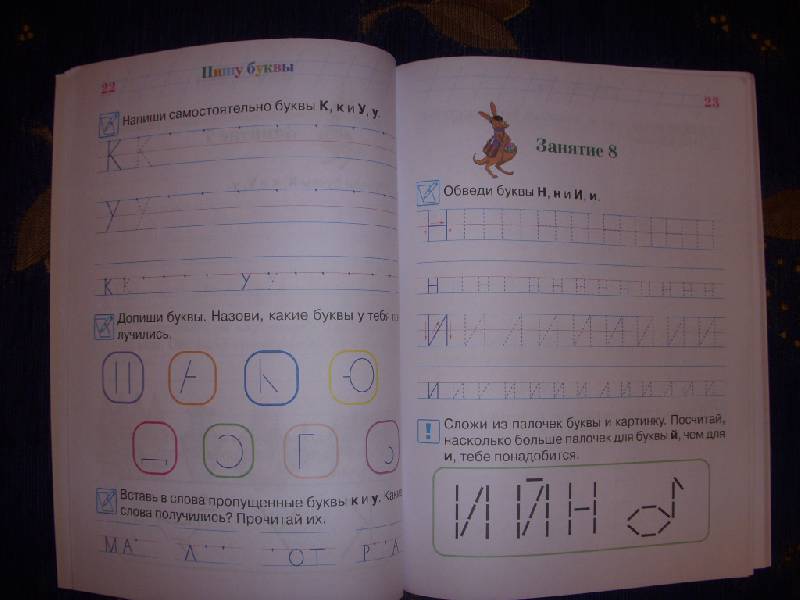 22
Пишу буквы
Напиши самостоятельно буквы К, к и У, у.
К К
У У
к к у у
Допиши буквы. Назови, какие буквы у тебя по-
лучились.
Вставь в слова пропущенные буквы к и у. Какие
слова получились? Прочитай их.
МА Л ОТ Р А
23
Занятие 8
Обведи буквы Н, н и И, и.
Н
н
И И И И И И И И И
и и и и и и и и и и и и
Сложи из палочек буквы и картинку. Посчитай,
насколько больше палочек для буквы й, чем для
и, тебе понадобится.
И Й Н